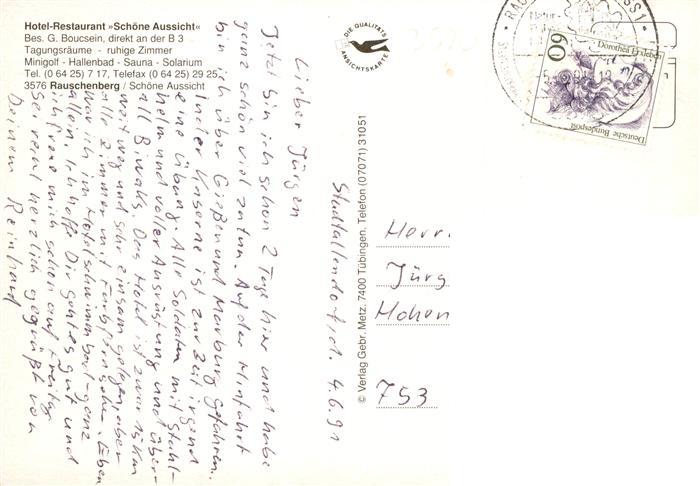 Hotel-Restaurant »Schöne Aussicht«
Bes. G. Boucsein, direkt an der B 3
Tagungsräume - ruhige Zimmer
Minigolf - Hallenbad - Sauna - Solarium
Tel. (0 64 25) 7 17, Telefax (0 64 25) 29 25
3576 Rauschenberg / Schöne Aussicht
DIE QUALITÄTS
ANSICHTSKARTE
60
Dorothea Erxleben
Deutsche Bundespost
Stadtallendorf, d. 4.6.91
Lieber Jürgen
Jetzt bin ich schon 2 Tage hier und habe
ganz schön viel zu tun. Auf der Hinfahrt
bin ich über Gießen und Marburg gefahren.
In der Kaserne ist zur Zeit irgend
eine Übung. Alle Soldaten mit Stahl-
helm und voller Ausrüstung und über-
all Biwaks. Das Hotel ist zwar 15 km
weit weg und sehr einsam gelegen, aber
alle Zimmer mit Farbfernseher. Eben
war ich im Hotelschwimmbad - ganz
allein. Ich hoffe Dir geht es gut und
ich freue mich schon auf Freitag
Sei recht herzlich gegrüßt von
Deinem Reinhard
© Verlag Gebr. Metz, 7400 Tübingen, Telefon (07071) 31051
Herrn
Jürg
Hohen
753